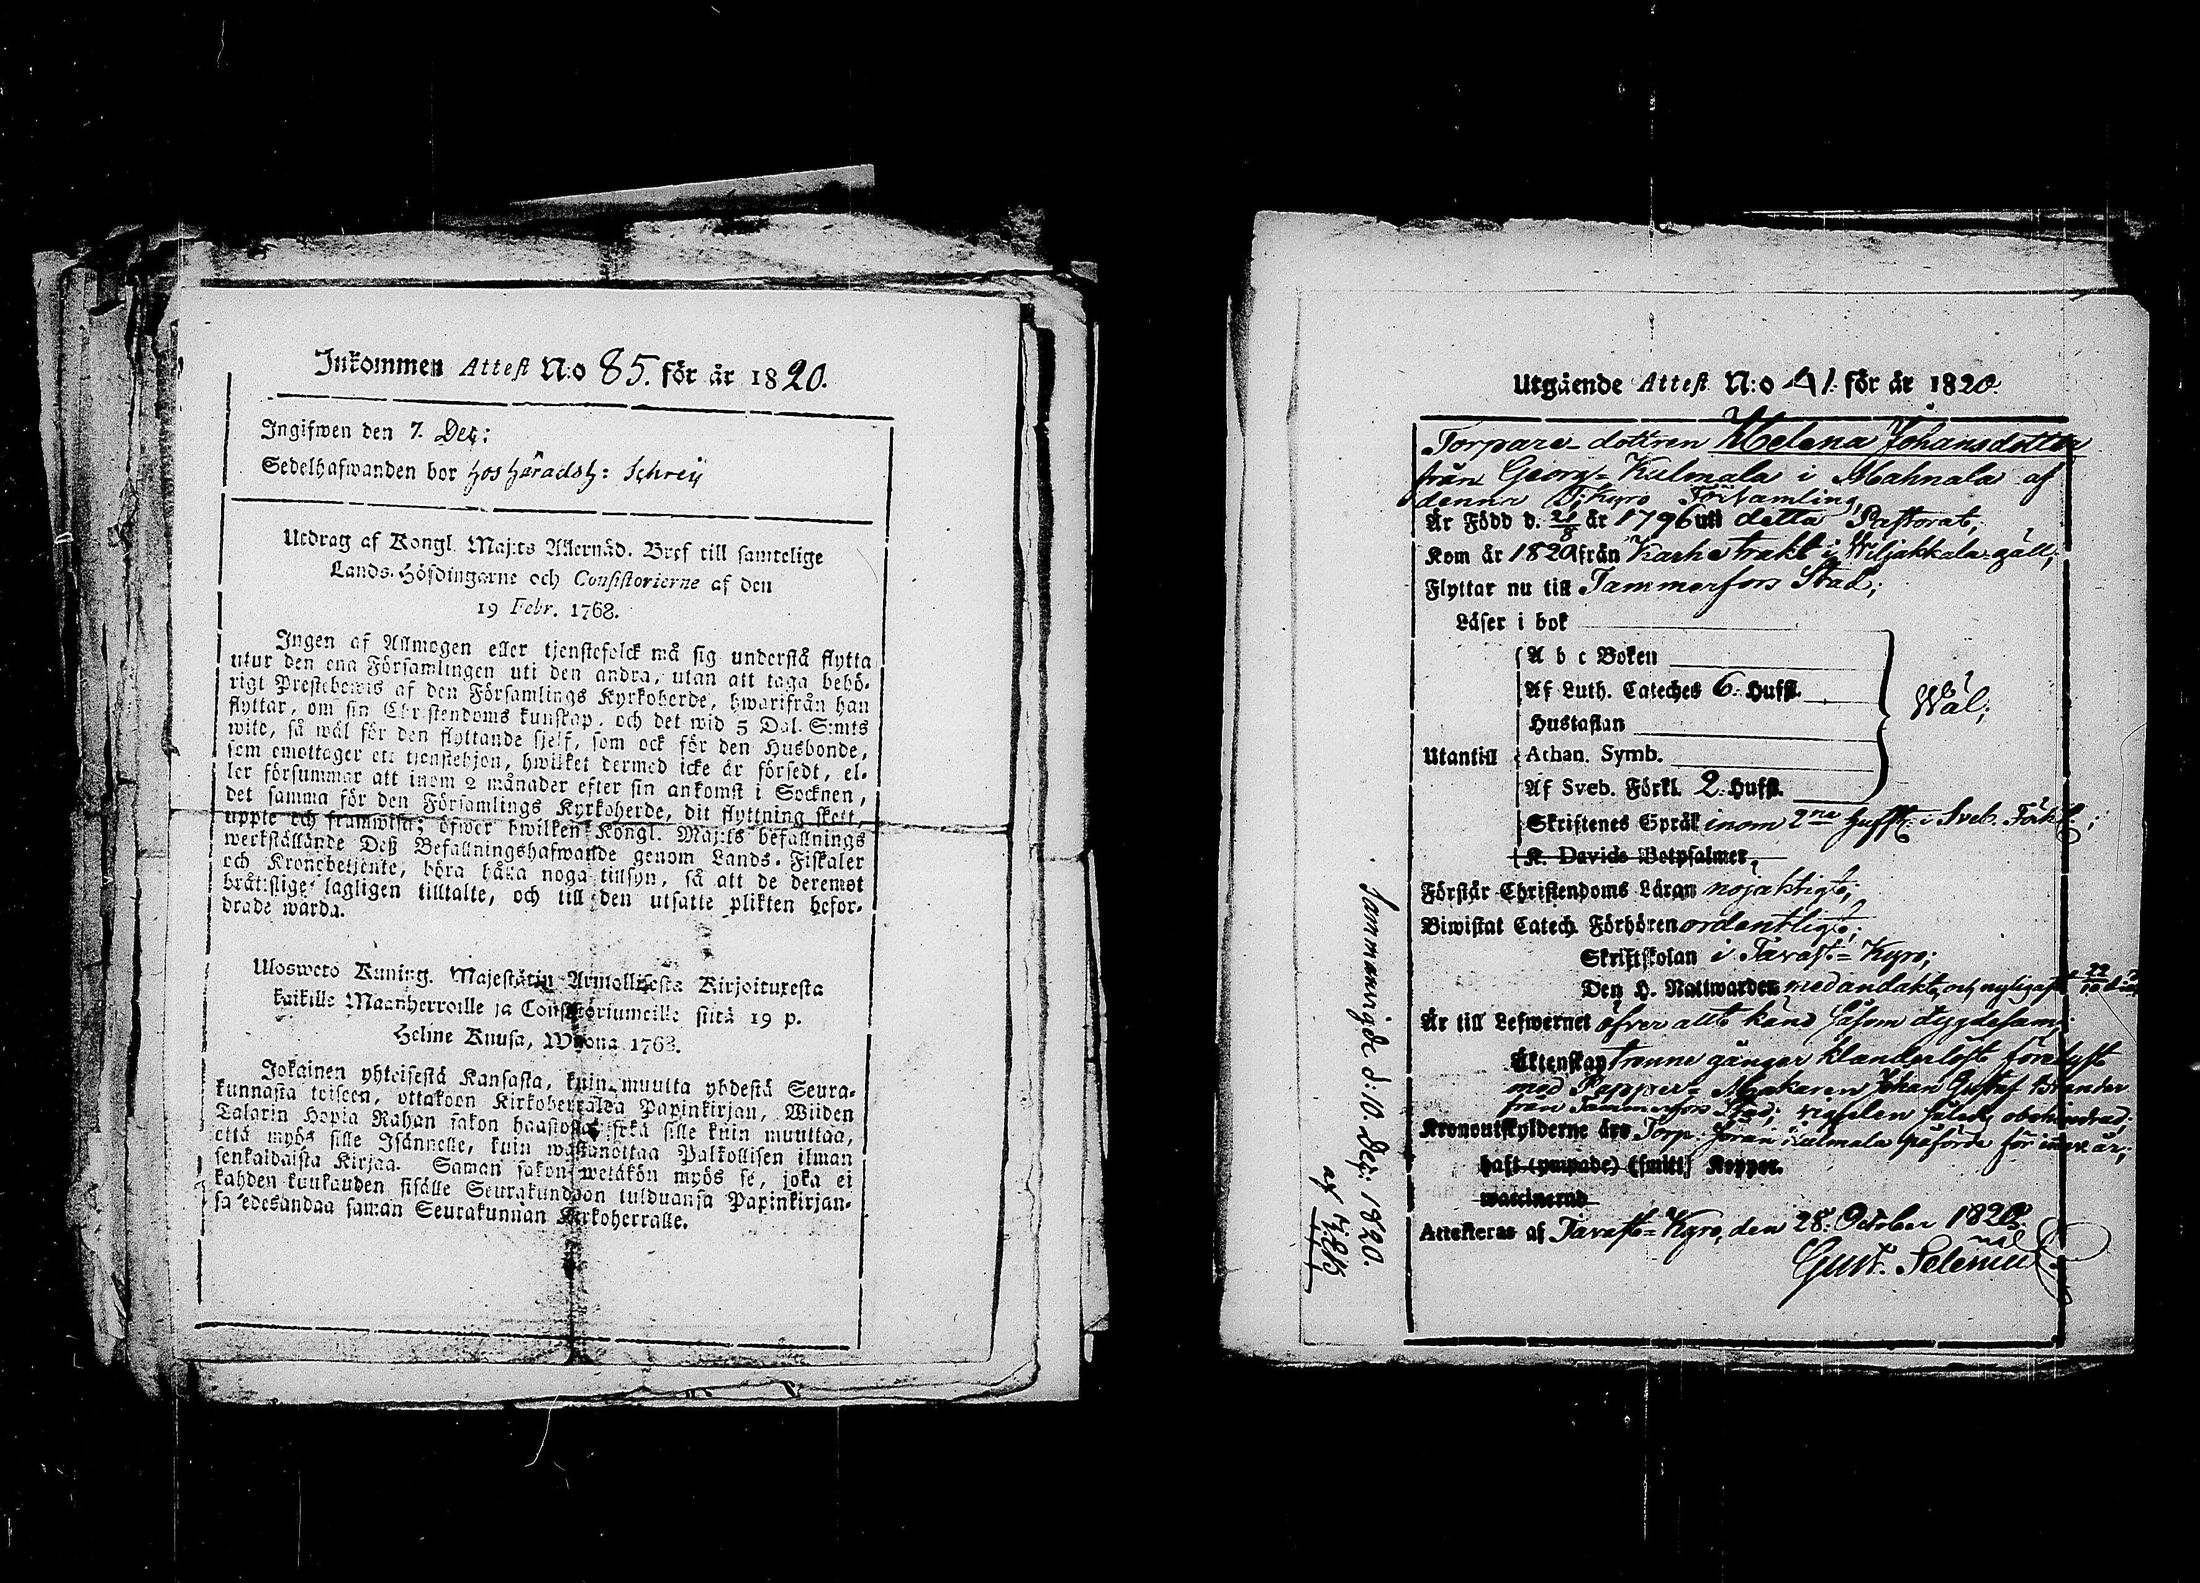 Inkommen Attest N:o 85. för år 1820.
Ingifwen den 7. Dec:
Sedelhafwanden bor hos häradsh: Schreij
Utdrag af Kongl. Maj:ts Allernåd. Bref till samtelige
Lands-Höfdingarne och Consistorierne af den
19 Febr. 1768.
Ingen af Allmogen eller tjenstefolck må sig understå flytta
utur den ena Församlingen uti den andra, utan att taga behö-
rigt Prestebewis af den Församlings Kyrkoherde, hwarifrån han
flyttar, om sin Christendoms kunskap, och det wid 5 Dal. S:mts
wite, så wäl för den flyttande sjelf, som ock för den Husbonde,
som emottager ett tjenstehjon, hwilket dermed icke är försedt, el-
ler försummar att inom 2 månader efter sin ankomst i Socknen,
det samma för den Församlings Kyrkoherde, dit flyttning skett,
uppte och framwisa; öfwer hwilken Kongl. Maj:ts befallnings
werkställande Deß Befallningshafwande genom Lands-Fiskaler
och Kronobetjente, böra hålla noga tillsyn, så att de deremot
bråtslige lagligen tilltalte, och till den utsatte plikten befor-
drade warda.
Ulosweto Kuning. Majestätin Armollisesta Kirjoituxesta
kaikille Maanherroille ja Consistoriumeille siitä 19 p.
Helme Kuusa, Wuona 1768.
Jokainen yhteisestä Kansasta, kuin muutta yhdestä Seura-
kunnasta toiseen, ottakoon Kirkoherralda Papinkirjan, Wiiden
Talarin Hopia Rahan sakon haastolla, sekä sille kuin muuttaa,
että myös sille Isännelle, kuin wastanottaa Palkollisen ilman
senkaldaista Kirjaa. Saman sakon wetäkön myös se, joka ei
kahden kuukauden sisälle Seurakundaan tulduansa Papinkirjan-
sa edesandaa saman Seurakunnan Kirkoherralle.
Utgående Attest N:o 41. för år 1820.
Torpare-dottren Helena Johansdotter
från Georg-Kulmala i Mahnala af
denna T;Kyro Församling,
Är Född d. 21/8 år 1796 uti detta Pastorat;
Kom år 1820 från Karhe trakt i Wiljakkala-gäll;
Flyttar nu till Tammerfors Stad;
Läser i bok
A b c Boken
Af Luth. Cateches 6. Hufst.
Hustaflan
Wäl;
Utantill Athan. Symb.
Af Sveb. Förkl. 2. Hufst.
Skriftenes Språk inom 2ne Hufst. i Sveb. Förkl.;
K. Davids Botpsalmer,
Förstår Christendoms Läran nöjaktigt;
Biwistat Catech. Förhören ordentligt;
Skriftskolan i Tavast-Kyro;
Den H. Nattwarden med andakt, och nyligast 22/10
Är till Lefwernet öfver allt känd såsom dygdesam;
Äktenskap trenne gånger klanderlöst förelyst
med Pappers-Makaren Johan Gustaf
från Tammerfors Stad; således obehindrad;
Kronoutskylderne äro Torp. Jöran Kulmala påförde för innev: år;
haft (ympade) (smitt) Koppor.
waccinerad
Attesteras af Tavast-Kyro, den 28. October 1820.
Gust. Selenius
Sammanvigde d: 10. Dec: 1820.